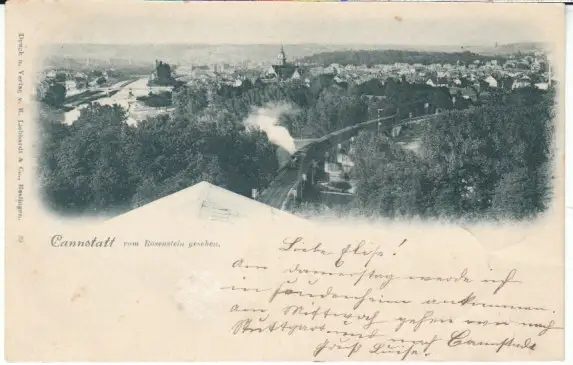 Druck u. Verlag v. R. Liebhardt & Co., Esslingen.
Cannstatt vom Rosenstein gesehen.
Liebe Elise!
Am donnerstag werde ich
in ankommen.
am Mittwoch gehen wir nach
Stuttgart und nach Cannstadt
Gruß Luise.